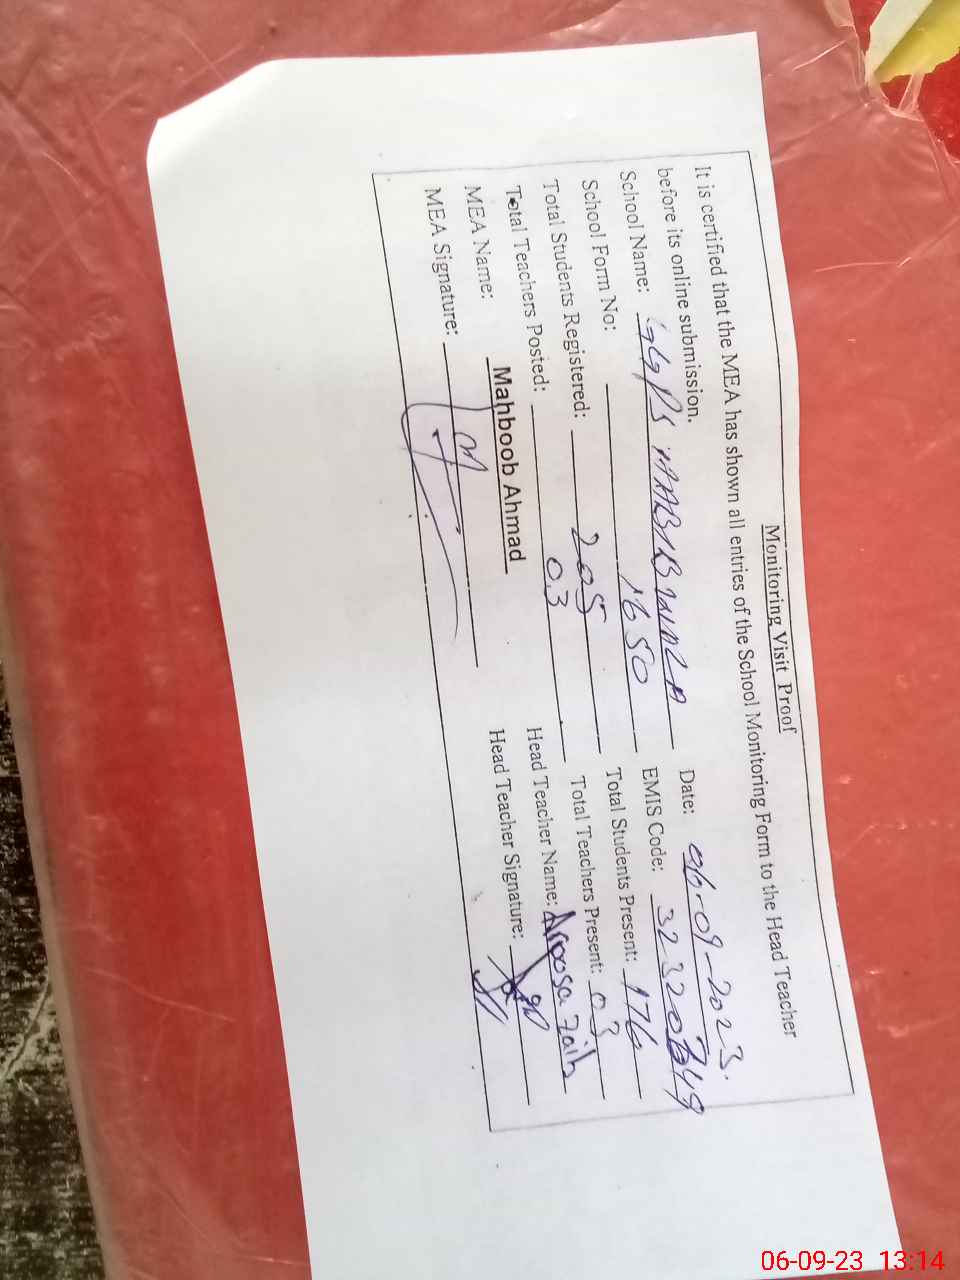 Monitoring Visit Proof
It is certified that the MEA has shown all entries of the School Monitoring Form to the Head Teacher
before its online submission.
Date: 06-09-2023.
School Name: GGPS
EMIS Code:
School Form No: 1650
Total Students Present: 176
Total Students Registered: 205
Total Teachers Present: 03
Total Teachers Posted: 03
Head Teacher Name: Aroosa Zaib
MEA Name: Mahboob Ahmad
Head Teacher Signature:
MEA Signature:
06-09-23 13:14